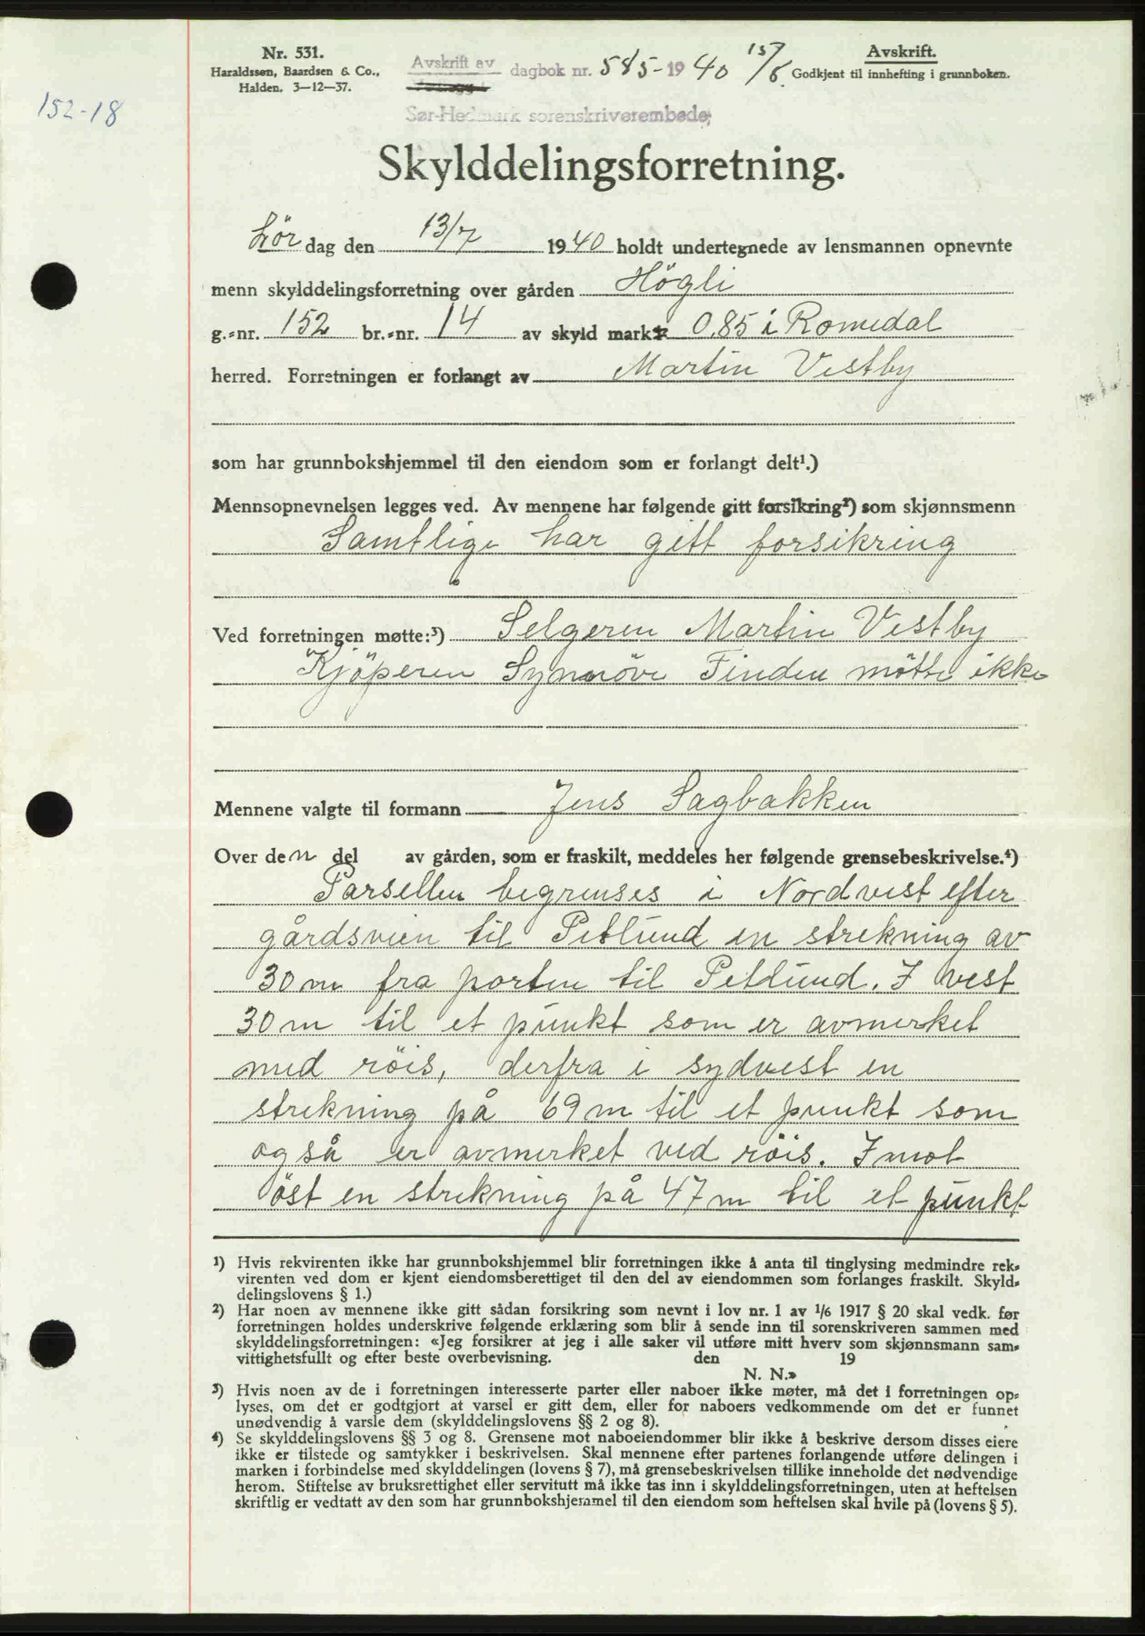 Nr. 531.
Haraldssen, Baardsen & Co.,
Halden. 3—12—37.
Avskrift av
dagbok nr. 585-1940 15/8
Avskrift.
Godkjent til innhefting i grunnboken.
Sør-Hedmark sorenskriverembede;
152-18
Skylddelingsforretning.
Lör dag den 13/7 1940 holdt undertegnede av lensmannen opnevnte
menn skylddelingsforretning over gården Högli
g.-nr. 152 br.-nr. 14 av skyld mark 0,85 i Romedal
herred. Forretningen er forlangt av Martin Vestby
som har grunnbokshjemmel til den eiendom som er forlangt delt¹.)
Mennsopnevnelsen legges ved. Av mennene har følgende gitt forsikring²) som skjønnsmenn
Samtlige har gitt forsikring
Ved forretningen møtte:³) Selgeren Martin Vestby
Kjöperen Synnöve Finden mötte ikke
Mennene valgte til formann Jens Sagbakken
Over den del av gården, som er fraskilt, meddeles her følgende grensebeskrivelse.⁴)
Parsellen begrenses i Nordvest efter
gårdsveien til Petlund en strekning av
30 m fra porten til Petlund. I vest
30 m til et punkt som er avmerket
med röis, derfra i sydvest en
strekning på 69 m til et punkt som
også er avmerket ved röis. I mot
öst en strekning på 47 m til et punkt
¹) Hvis rekvirenten ikke har grunnbokshjemmel blir forretningen ikke å anta til tinglysing medmindre rek-
virenten ved dom er kjent eiendomsberettiget til den del av eiendommen som forlanges fraskilt. Skyld-
delingslovens § 1.)
²) Har noen av mennene ikke gitt sådan forsikring som nevnt i lov nr. 1 av 1/6 1917 § 20 skal vedk. før
forretningen holdes underskrive følgende erklæring som blir å sende inn til sorenskriveren sammen med
skylddelingsforretningen: «Jeg forsikrer at jeg i alle saker vil utføre mitt hverv som skjønnsmann sam-
vittighetsfullt og efter beste overbevisning. den 19
N. N.»
³) Hvis noen av de i forretningen interesserte parter eller naboer ikke møter, må det i forretningen op-
lyses, om det er godtgjort at varsel er gitt dem, eller for naboers vedkommende om det er funnet
unødvendig å varsle dem (skylddelingslovens §§ 2 og 8).
⁴) Se skylddelingslovens §§ 3 og 8. Grensene mot naboeiendommer blir ikke å beskrive dersom disses eiere
ikke er tilstede og samtykker i beskrivelsen. Skal mennene efter partenes forlangende utføre delingen i
marken i forbindelse med skylddelingen (lovens § 7), må grensebeskrivelsen tillike inneholde det nødvendige
herom. Stiftelse av bruksrettighet eller servitutt må ikke tas inn i skylddelingsforretningen, uten at heftelsen
skriftlig er vedtatt av den som har grunnbokshjemmel til den eiendom som heftelsen skal hvile på (lovens § 5).